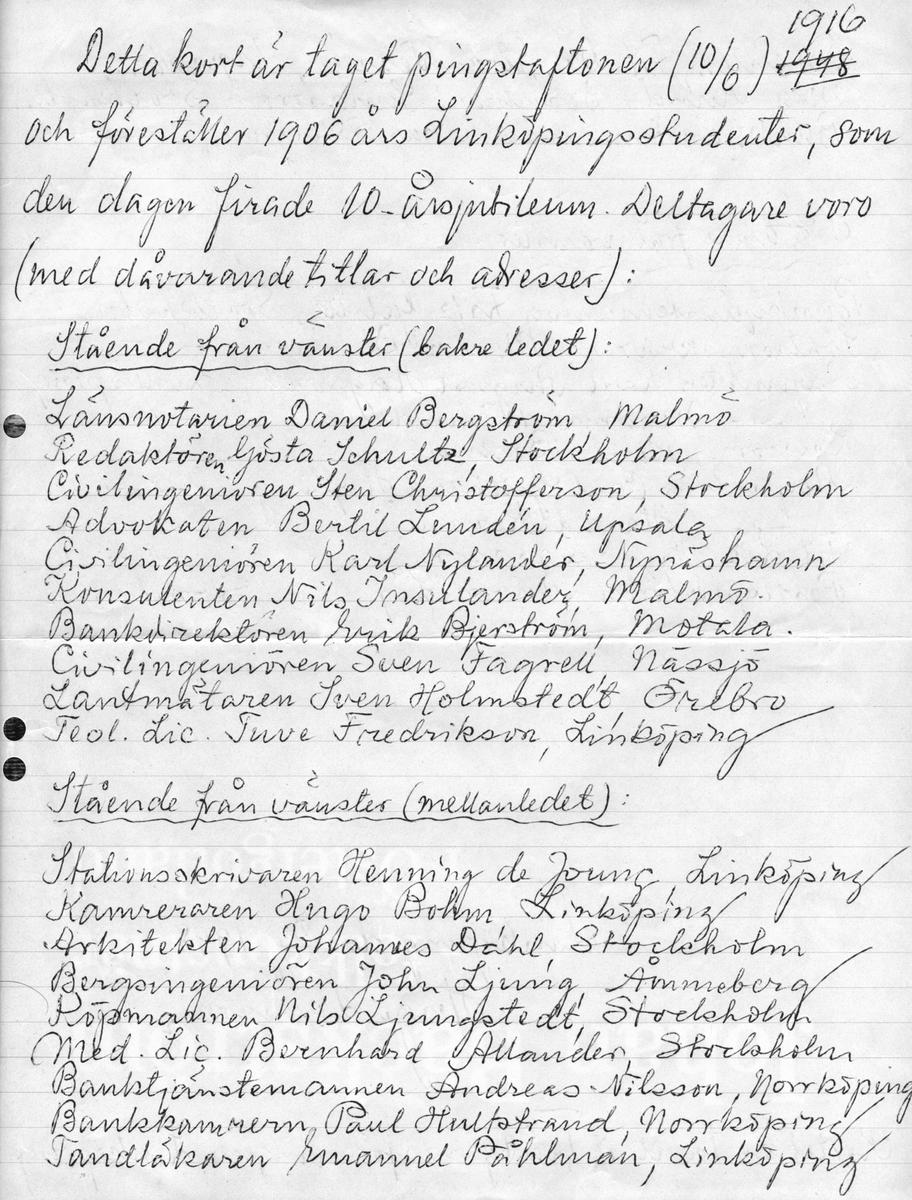 1916
Detta kort är taget pingstaftonen (10/6) 1948
och föreställer 1906 års Linköpingsstudenter, som
den dagen firade 10-årsjubileum. Deltagare voro
(med dåvarande titlar och adresser):
Stående från vänster (bakre ledet):
Länsnotarien Daniel Bergström, Malmö
Redaktören Gösta Schultz, Stockholm
Civilingeniören Sten Christofferson, Stockholm
Advokaten Bertil Lundén, Upsala
Civilingeniören Karl Nylander, Nynäshamn
Konsulenten Nils Insulander, Malmö.
Bankdirektören Erik Bjerström, Motala.
Civilingeniören Sven Fagrell, Nässjö
Lantmätaren Sven Holmstedt, Örebro
Teol. Lic. Tuve Fredrikson, Linköping
Stående från vänster (mellanledet):
Stationsskrivaren Henning de Joung, Linköping
Kamreraren Hugo Bohm, Linköping
Arkitekten Johannes Dahl, Stockholm
Bergsingeniören John Ljung, Åmmeberg
Köpmannen Nils Ljungstedt, Stockholm
Med. Lic. Bernhard Allander, Stockholm
Banktjänstemannen Andreas Nilsson, Norrköping
Bankkamrern Paul Hultstrand, Norrköping
Tandläkaren Emanuel Påhlman, Linköping